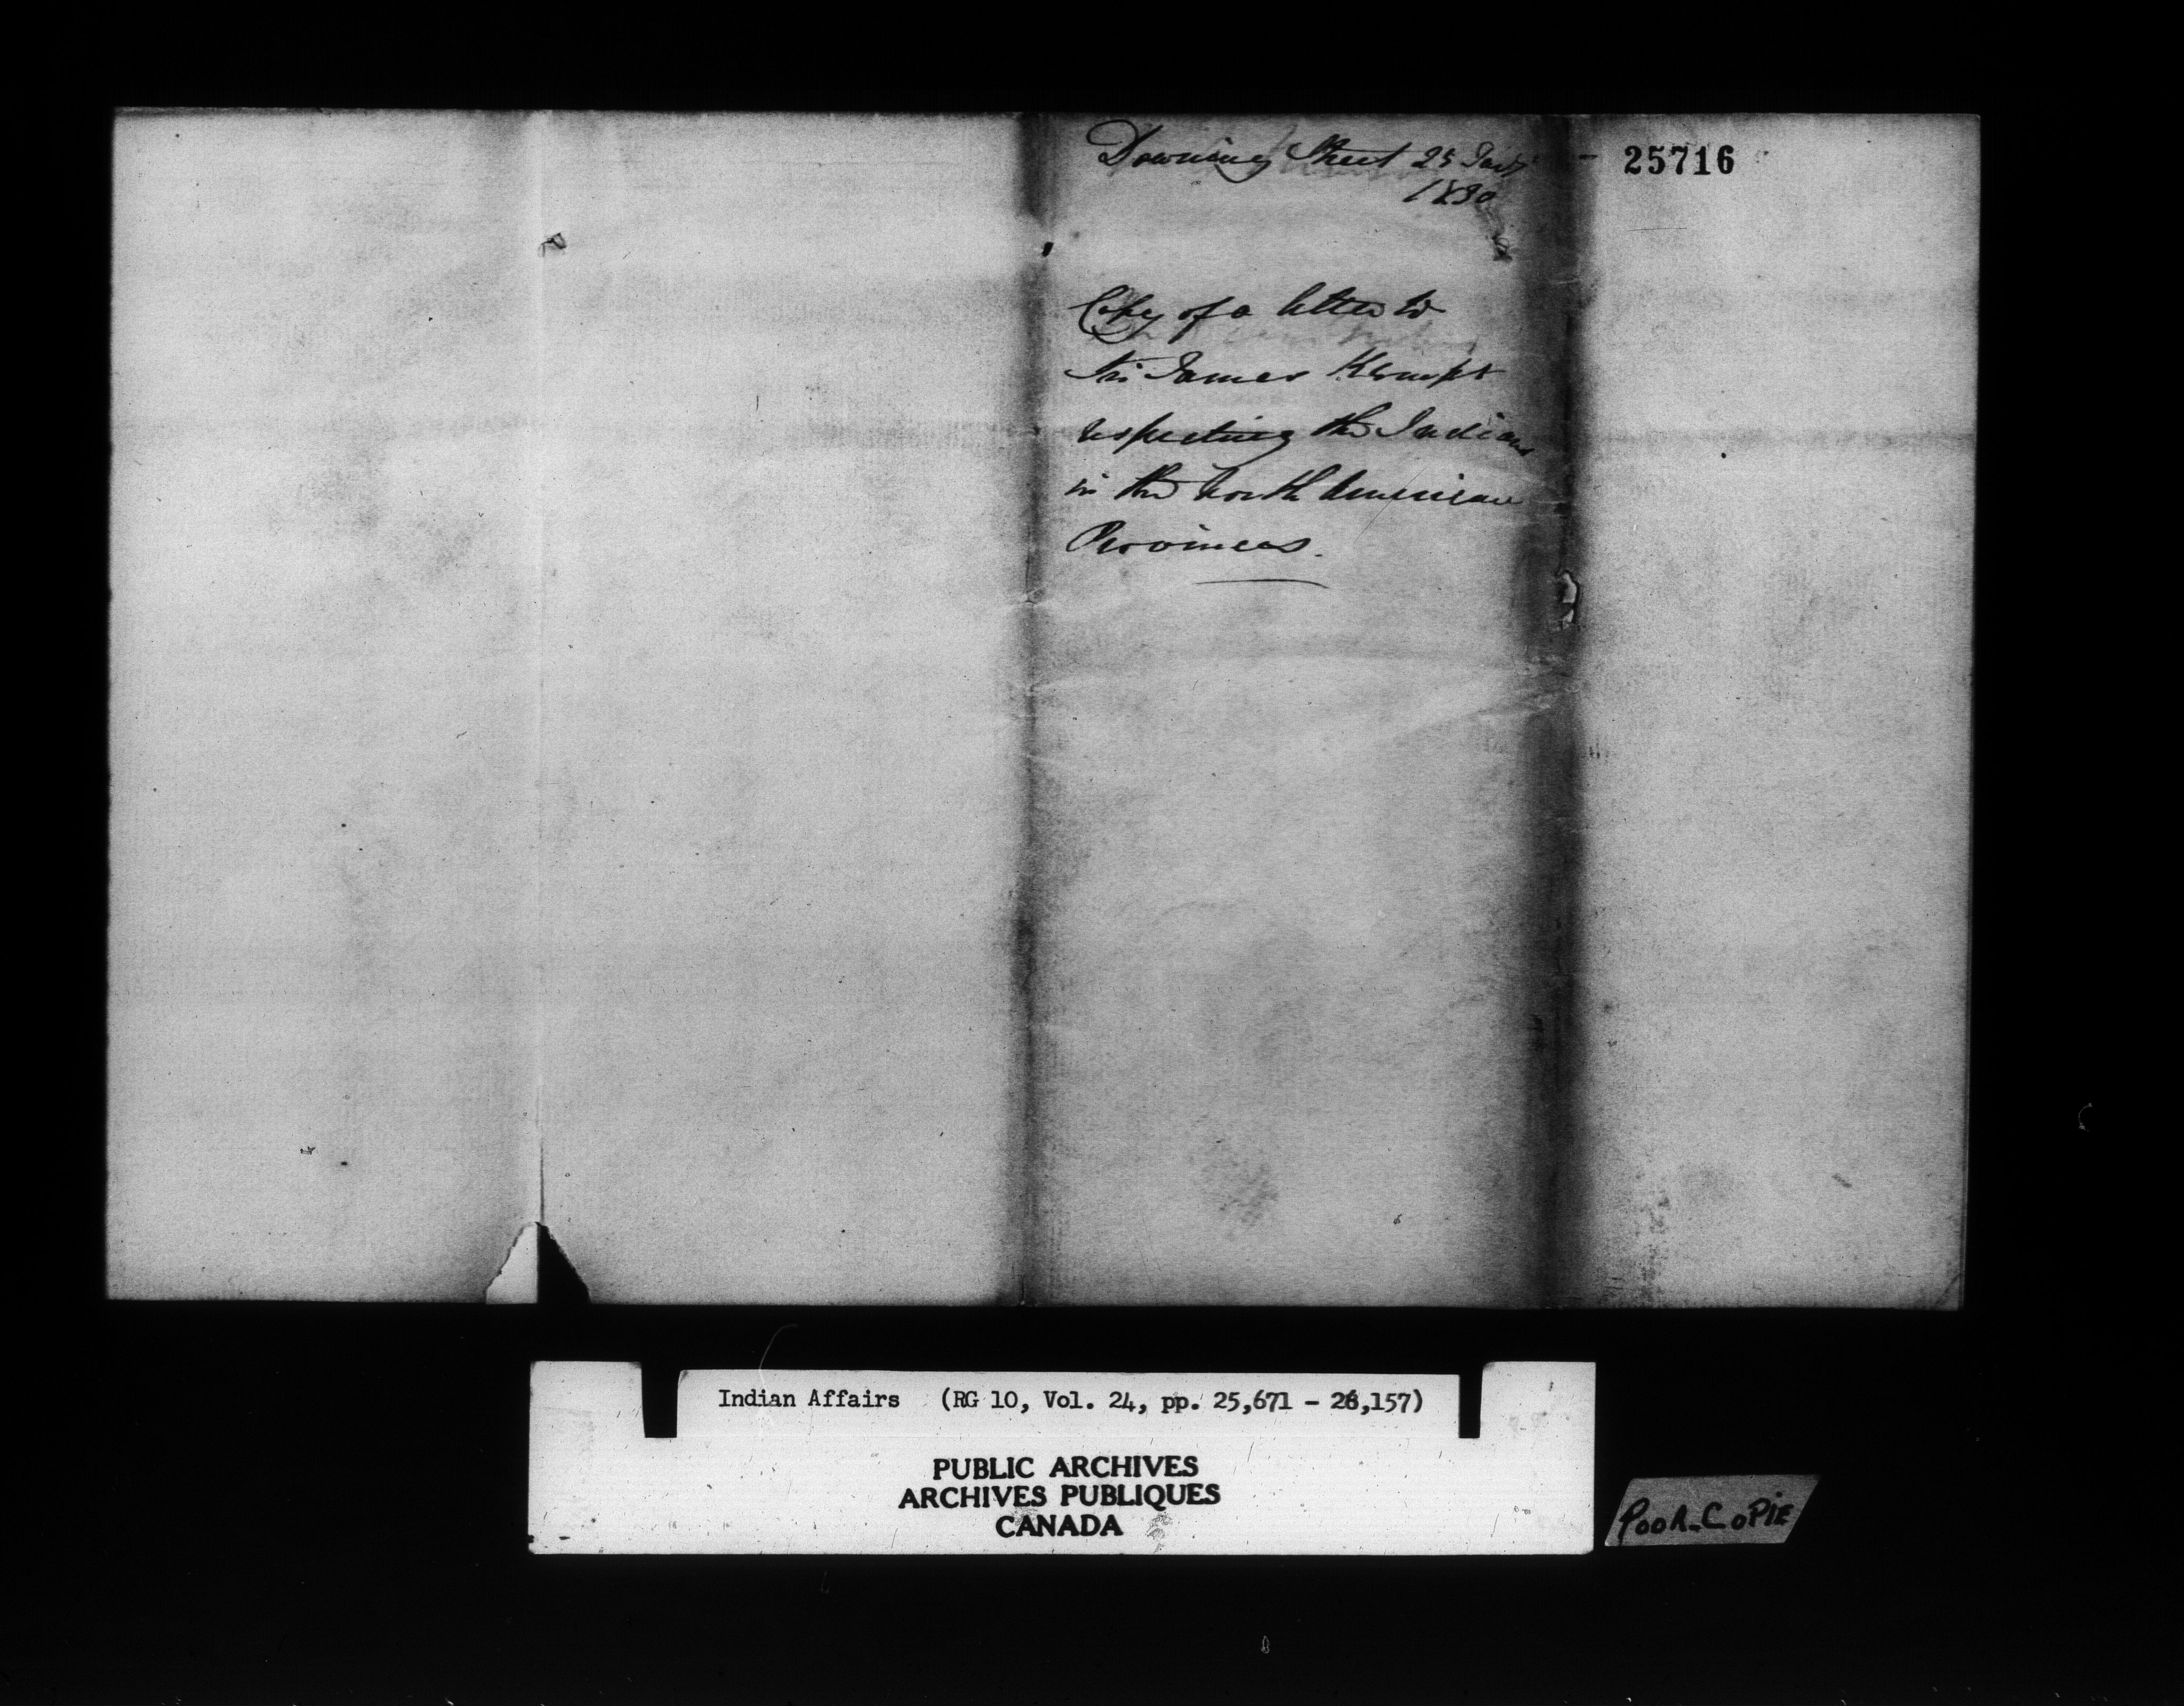 Downing Street 25 Jany
1830
25716
Copy of a letter to
Sir James Kempt
respecting the Indians
in the North American
Provinces.
Indian Affairs (RG 10, Vol. 24, pp. 25,671 - 26,157)
PUBLIC ARCHIVES
ARCHIVES PUBLIQUES
CANADA
POOR COPIE